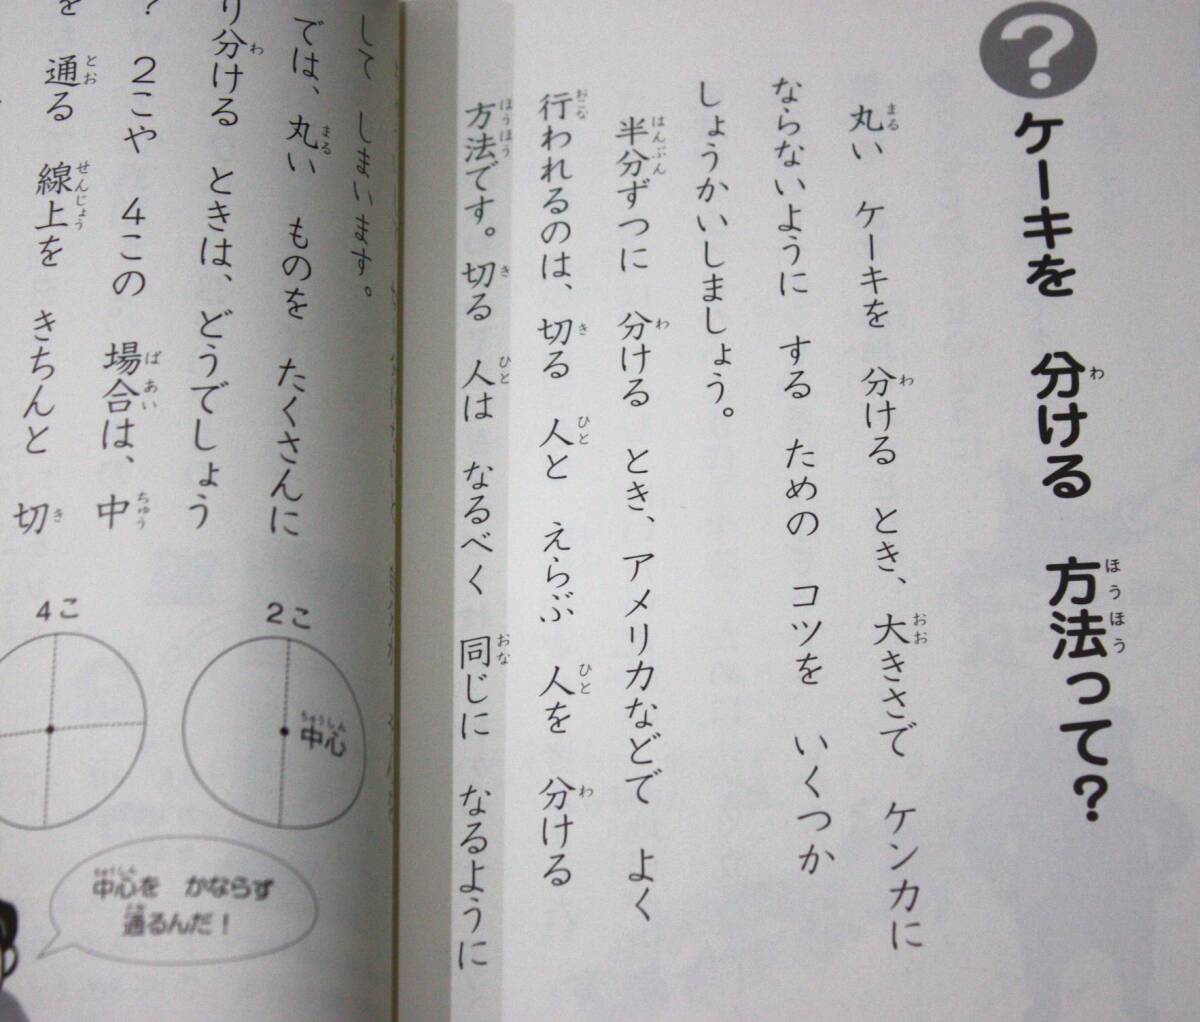 ? ケーキを 分ける 方法って?
丸い ケーキを 分ける とき、大きさで ケンカに
ならないように する ための コツを いくつか
しょうかいしましょう。
半分ずつに 分ける とき、アメリカなどで よく
行われるのは、切る 人と えらぶ 人を 分ける
方法です。切る 人は なるべく 同じに なるように
して しまいます。
では、丸い ものを たくさんに
り分ける ときは、どうでしょう
? 2こや 4この 場合は、中
を 通る 線上を きちんと 切
2こ
中心
4こ
中心を かならず
通るんだ!